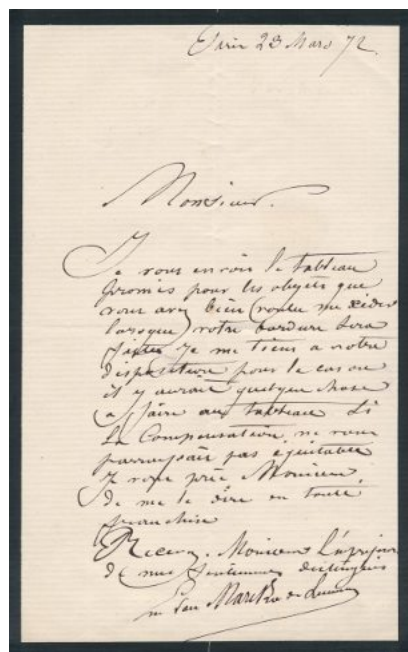 Paris 23 Mars 72.
Monsieur.
Je vous envois le tableau
promis pour les objets que
vous avez bien voulu me céder
lorsque votre bordure sera
faites je me tiens a votre
disposition pour le cas ou
il y aurait quelque chose
a faire au tableau Si
la Compensation ne vous
paraissait pas équitable
Je vous prie Monsieur
de me le dire en toute
franchise
Recevez Monsieur L'expression
de mes Sentiments distingués